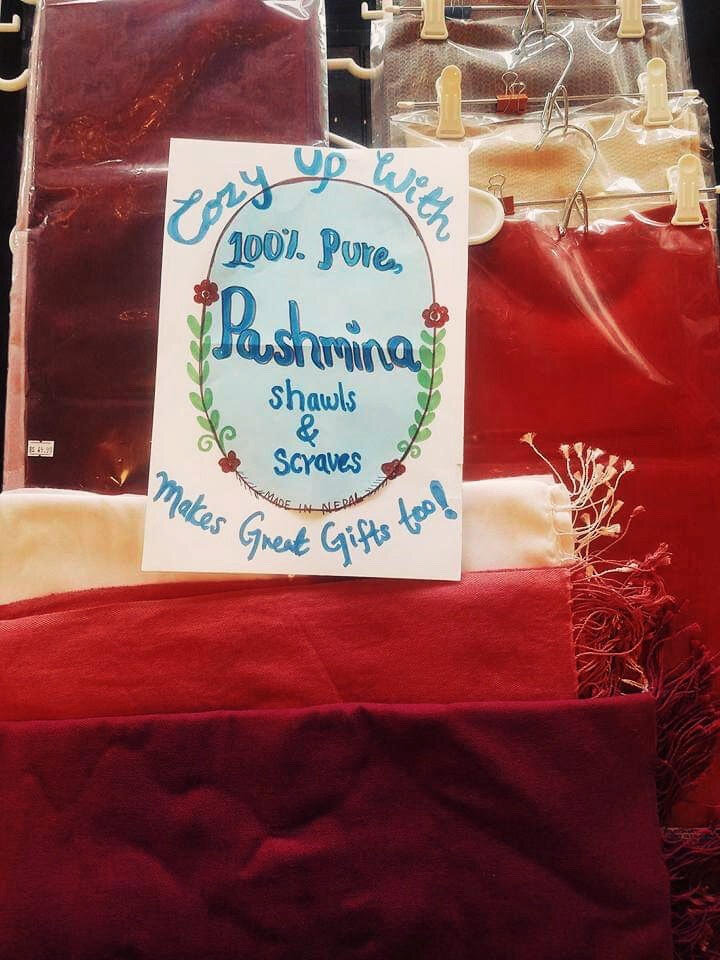 Cozy Up With
100% Pure,
Pashmina
shawls
&
scraves
MADE IN NEPAL
Makes Great Gifts too!